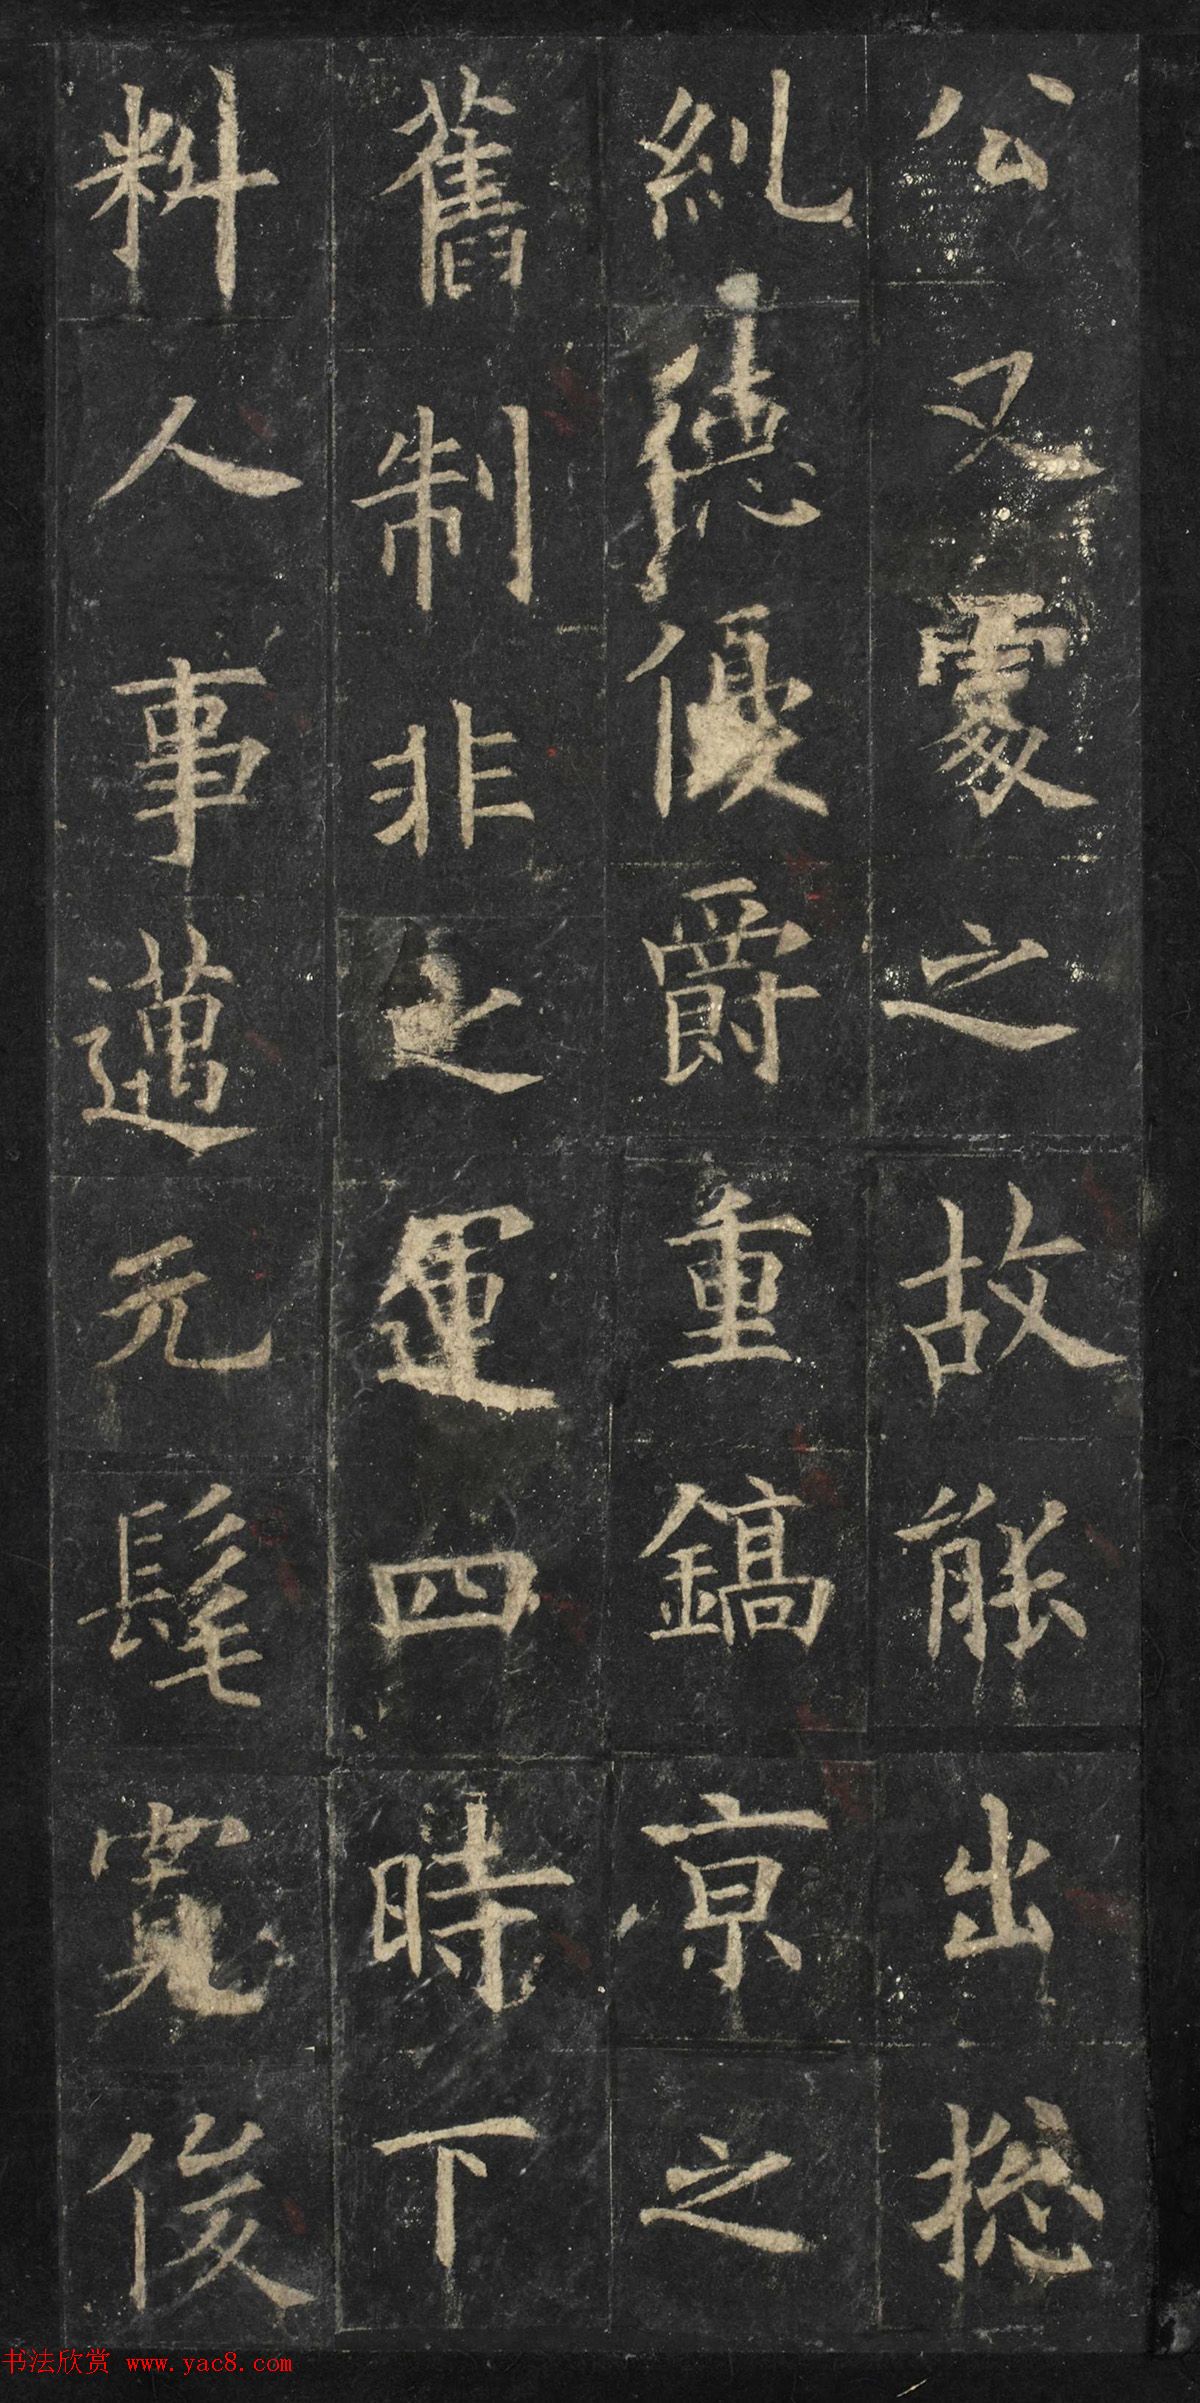 公又處之故能出總
糺德優爵重鎬京之
舊制非之運四時下
料人事邁元髦寬俊
书法欣赏 www.yac8.com